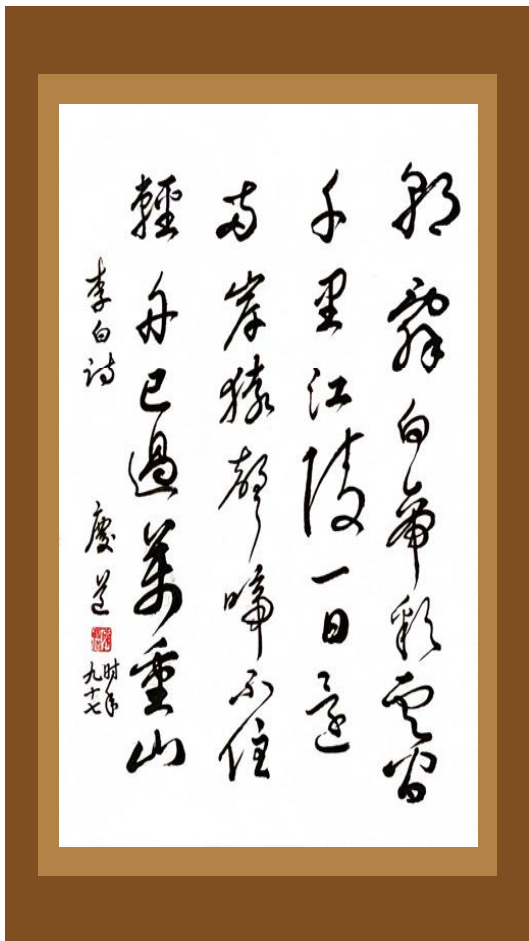 朝辭白帝彩雲間
千里江陵一日還
两岸猿聲啼不住
輕舟已過萬重山
李白詩
慶道
时年
九十七